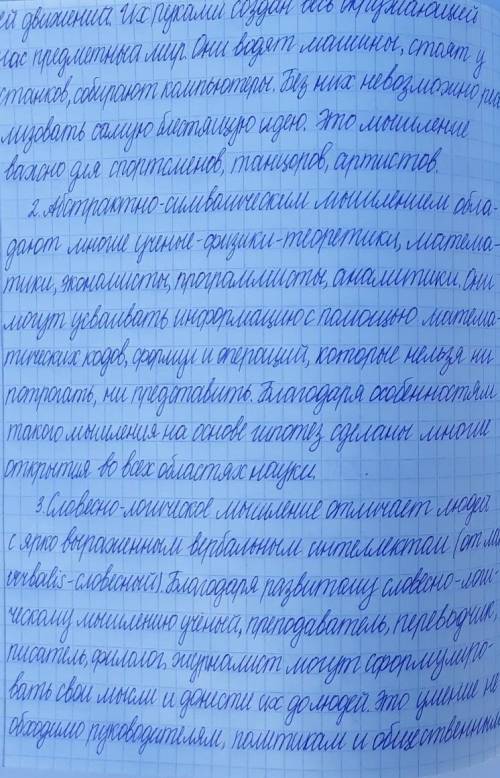 ей движений. Их руками создан весь окружающий
нас предметный мир. Они водят машины, стоят у
станков, собирают компьютеры. Без них невозможно реа-
лизовать самую блестящую идею. Это мышление
важно для спортсменов, танцоров, артистов.
2. Абстрактно-символическим мышлением обла-
дают многие ученые-физики-теоретики, матема-
тики, экономисты, программисты, аналитики. Они
могут усваивать информацию с помощью матема-
тических кодов, формул и операций, которые нельзя ни
потрогать, ни представить. Благодаря особенностям
такого мышления на основе гипотез сделаны многие
открытия во всех областях науки.
3. Словесно-логическое мышление отличает людей
с ярко выраженным вербальным интеллектом (от ла
verbalis-словесный). Благодаря развитому словесно-логи-
ческому мышлению учёный, преподаватель, переводчик,
писатель, филолог, журналист могут сформулиро-
вать свои мысли и донести их до людей. Это умение не-
обходимо руководителям, политикам и общественным